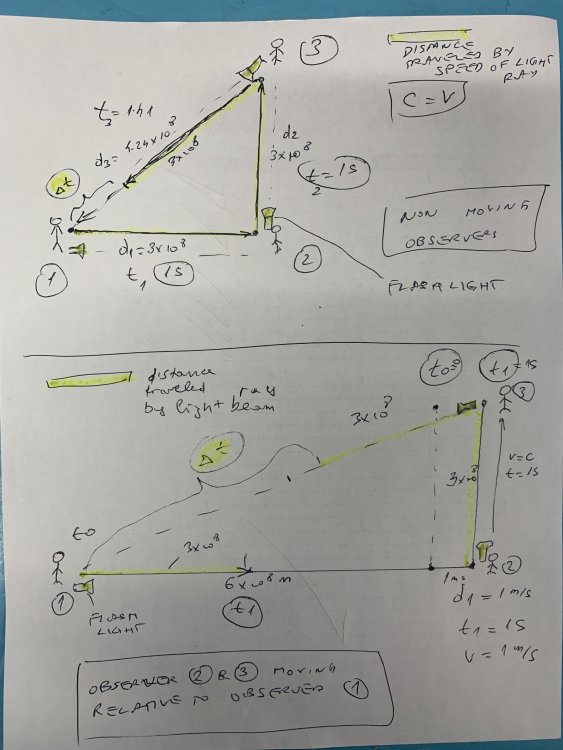 3
DISTANCE
TRAVELED BY
SPEED OF LIGHT
RAY
C = V
t3 = 1.41
4.24 x 10^8
d3 =
3x10^8
Δt
d2
3x10^8
t2 = 1S
NON MOVING
OBSERVERS
d1 = 3x10^8
1
t1 1S
2
FLASH LIGHT
distance
traveled ray
by light beam
t0=0
t1=1S
3
3x10^8
Δt
v=c
t=1S
3x10^8
t0
3x10^8
1
6x10^8 m
1ms
2
FLASH
LIGHT
t1
d1 = 1 m/s
t1 = 1S
V = 1 m/s
OBSERVER 2 & 3 MOVING
RELATIVE TO OBSERVER 1